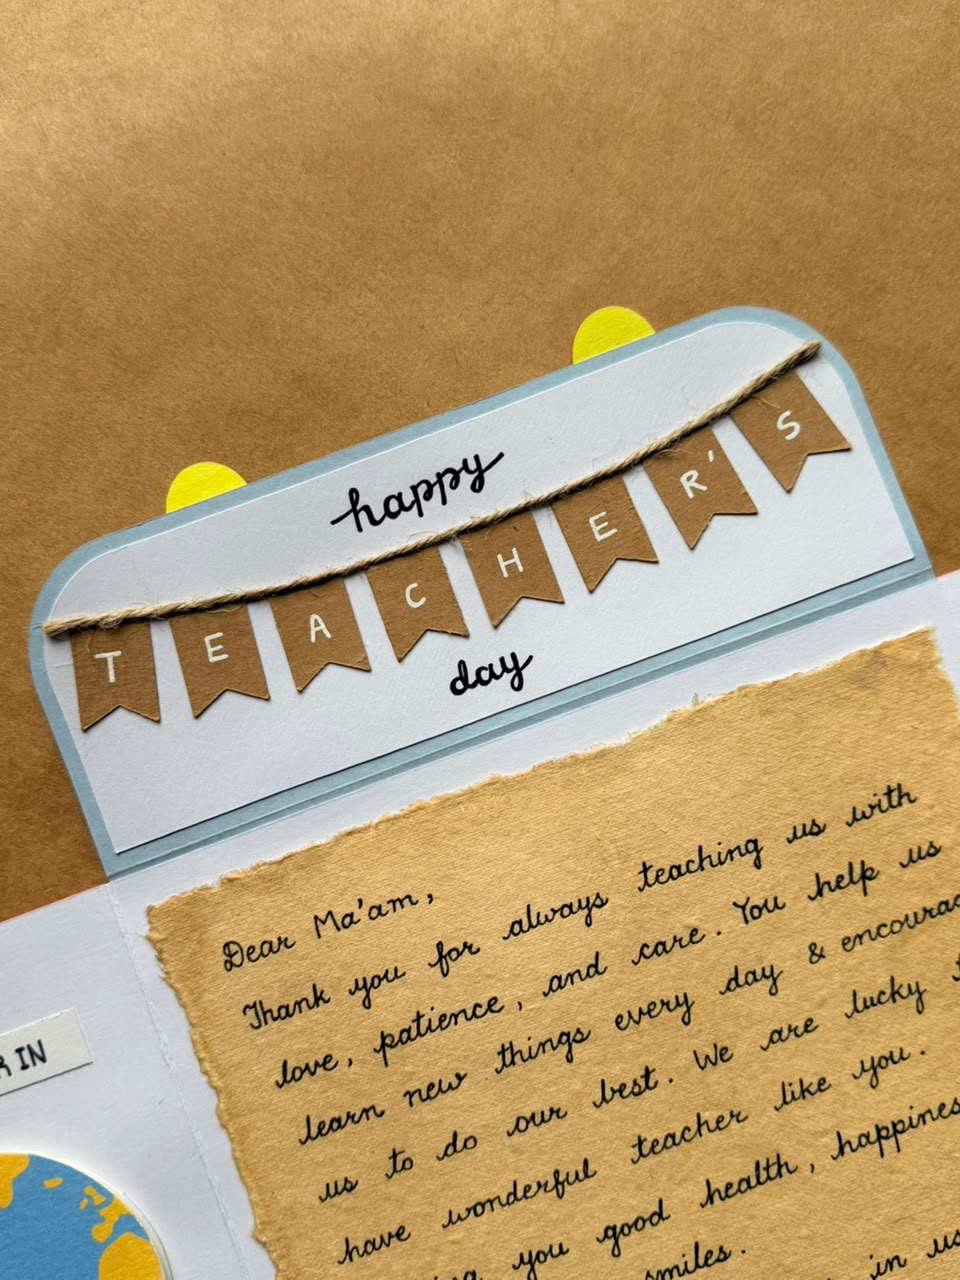 happy
TEACHER'S
day
Dear Ma'am,
Thank you for always teaching us with
love, patience, and care. You help us
learn new things every day &
us to do our best. We are lucky
have wonderful teacher like you.
you good health,
smiles.
in us
IN